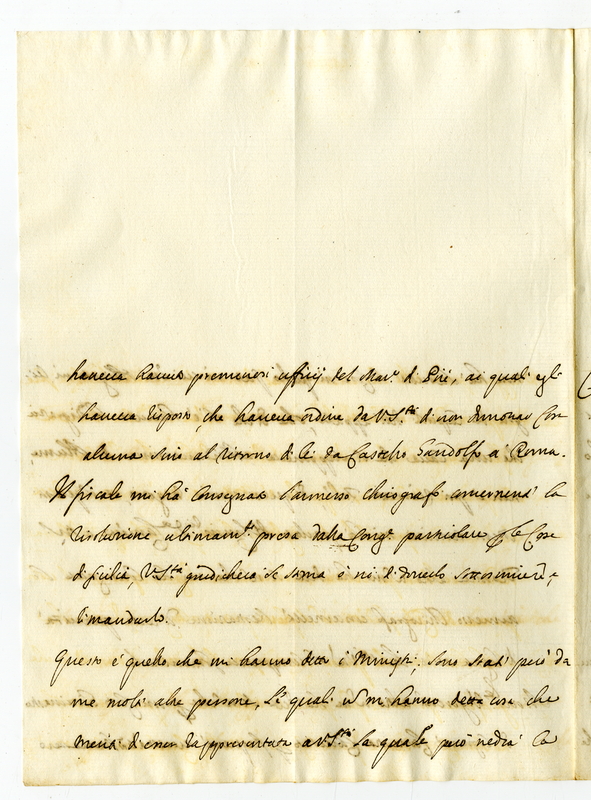 haveva havuto premurosi uffitij del Mar.e di Priè, ai quali egli
haveva risposto, che haveva ordine da V. S.tà di non innovar cosa
alcuna sino al ritorno di lei da Castello Gandolfo a Roma.
Il fiscale mi hà consegnato l'annesso chirografo concernente la
risoluzione ultimam.te presa dalla Cong.e particolare p le cose
di sicilia, V. S.tà giudicherà se stima ò nò di doverlo sottoscrivere, e
rimandarlo.
Questo è quello che mi hanno detto i Ministri; sono stati però da
me molte altre persone, le quali non m'hanno detto cosa che
meriti di esser rappresentata a V. S.tà la quale però vedrà la